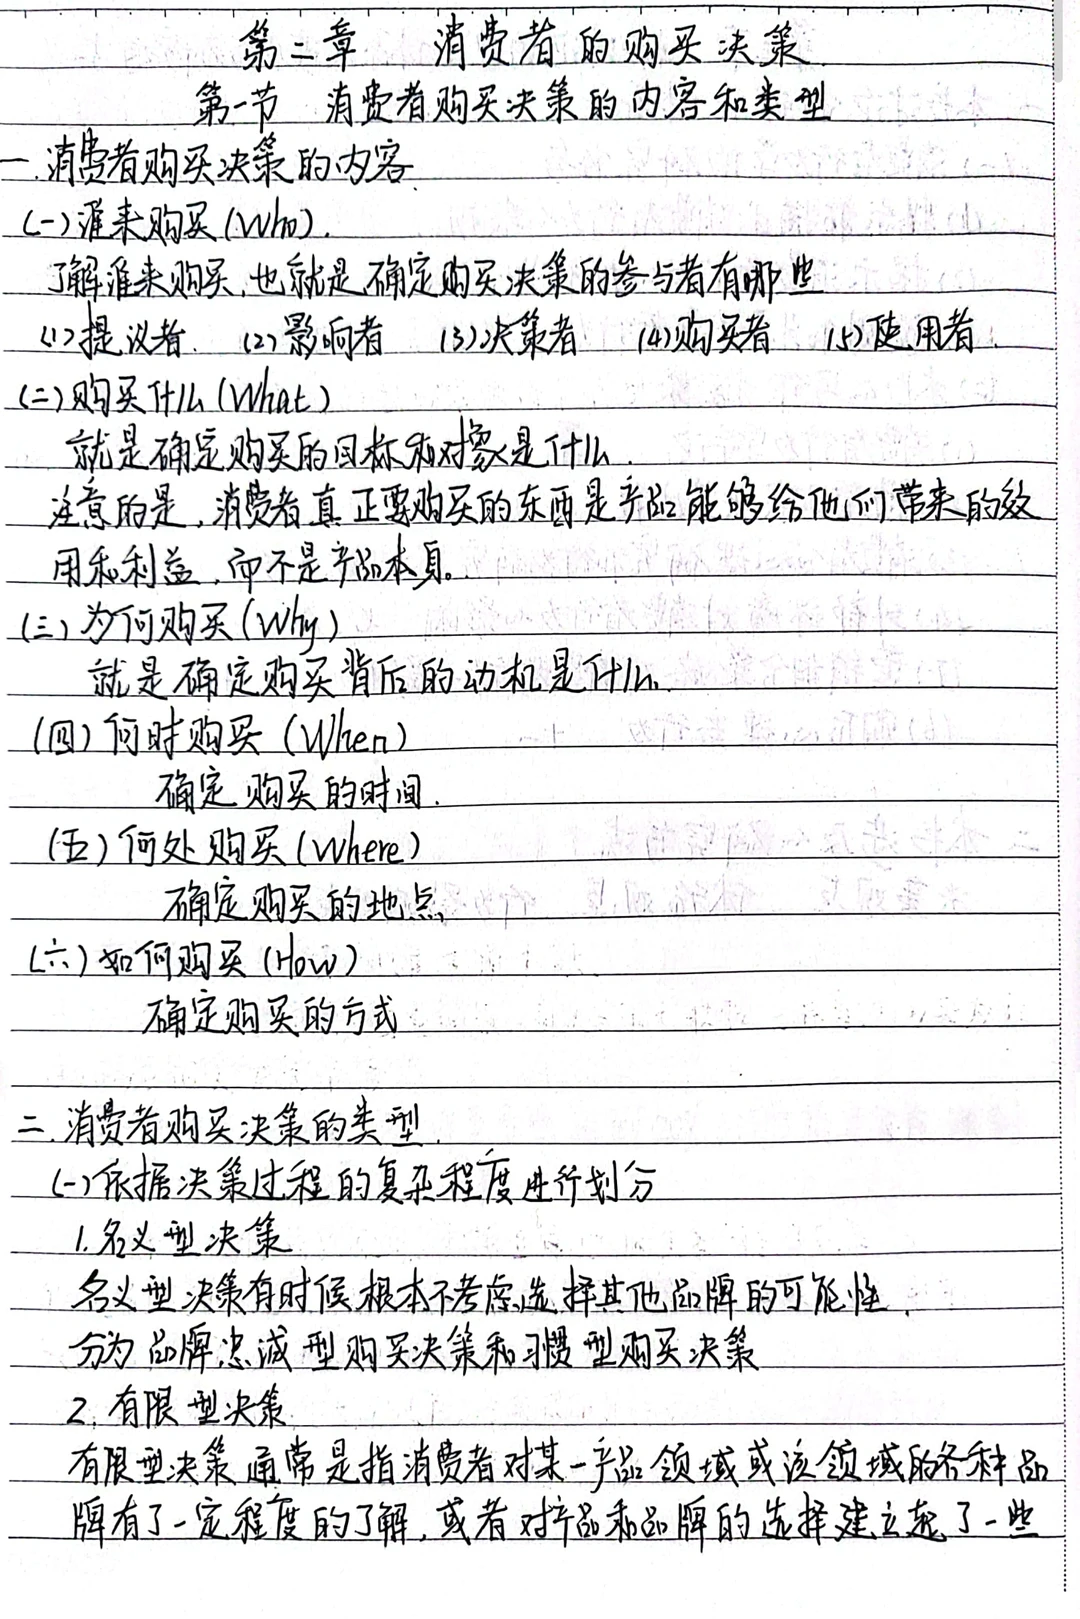 第二章 消费者的购买决策
第一节 消费者购买决策的内容和类型
一.消费者购买决策的内容
(一)谁来购买(Who).
了解谁来购买,也就是确定购买决策的参与者有哪些
(1)提议者. (2)影响者 (3)决策者 (4)购买者 (5)使用者.
(二)购买什么(What)
就是确定购买的目标和对象是什么.
注意的是,消费者真正要购买的东西是产品能够给他们带来的效
用和利益,而不是产品本身。
(三)为何购买(Why)
就是确定购买背后的动机是什么.
(四)何时购买(When)
确定购买的时间.
(五)何处购买(Where)
确定购买的地点.
(六)如何购买(How)
确定购买的方式
二.消费者购买决策的类型.
(一)依据决策过程的复杂程度进行划分
1.名义型决策
名义型决策有时候根本不考虑选择其他品牌的可能性.
分为品牌忠诚型购买决策和习惯型购买决策
2.有限型决策
有限型决策通常是指消费者对某一产品领域或该领域的各种品
牌有了一定程度的了解,或者对产品和品牌的选择建立起了一些